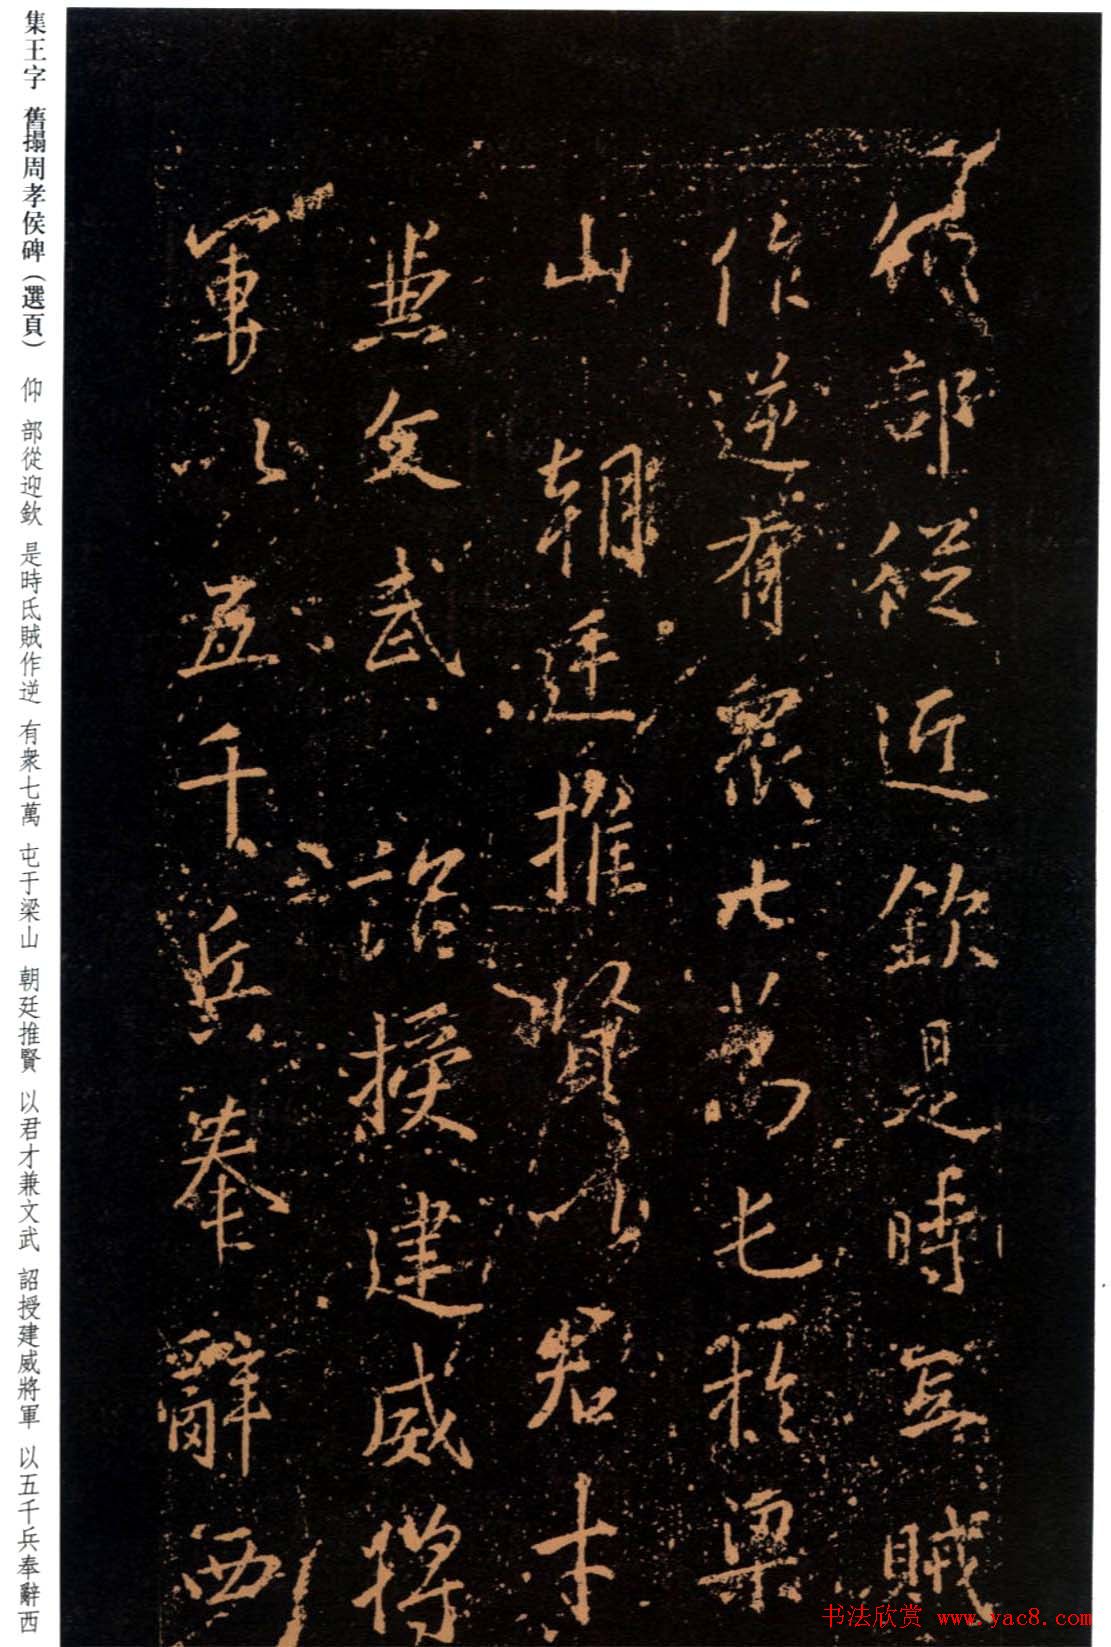 仰部從近欽是時氐賊
作逆有眾七萬屯於梁
山朝廷推賢以君才
兼文武詔授建威將
軍以五千兵奉辭西
集王字 舊搨周孝侯碑（選頁） 仰 部從迎欽 是時氐賊作逆 有衆七萬 屯于梁山 朝廷推賢 以君才兼文武 詔授建威將軍 以五千兵奉辭西
书法欣赏 www.yac8.com